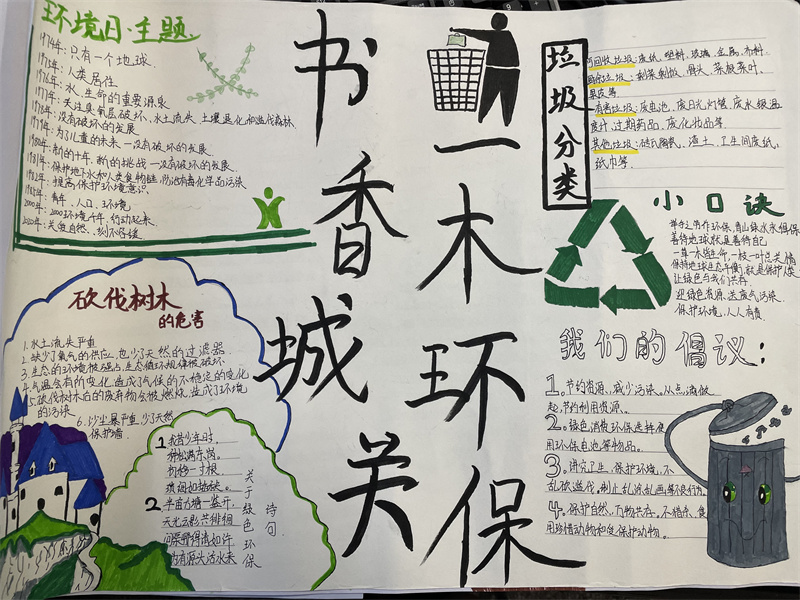 环境日·主题
1974年:只有一个地球
1975年:人类居住
1976年:水,生命的重要源泉
1977年:关注臭氧层破坏,水土流失,土壤退化和滥伐森林
1978年:没有破坏的发展
1979年:为了儿童的未来—没有破坏的发展
1980年:新的十年,新的挑战—没有破坏的发展
1981年:保护地下水和人类食物链,防治有毒化学品污染
1982年:提高保护环境意识
环境
2000年:2000环境千年,行动起来
2020年:关爱自然,刻不容缓
砍伐树木
的危害
1.水土流失严重
2.缺少了氧气的供应,也少了天然的过滤器
3.生态的环境被
4.气温会有所变化,造成了气候的不稳定的变化
5.砍伐树木后的废弃物会被燃烧,造成了环境
的污染
6.沙尘暴严重,少了天然
保护墙
1
我昔少年日,
种松满东岗。
初移一寸根,
琐细如插秧。
2
半亩方塘一鉴开,
天光云影共徘徊
问渠那得清如许
为有源头活水来
关于绿色环保
诗句
书香城关
一木环保
垃圾分类
可回收垃圾:废纸,塑料,玻璃,金属,布料
厨余垃圾:剩菜剩饭,骨头,菜根菜叶,
果皮等
有害垃圾:废电池,废日光灯管,废水银温
度计,过期药品,废化妆品等
其他垃圾:砖瓦陶瓷,渣土,卫生间废纸,
纸巾等.
小口诀
举手之劳作环保,青山绿水永相保
善待地球就是善待自己
一草一木皆生命,一枝一叶总关情
保持地球生态平衡,就是保护人类
让绿色与我们共存
迎绿色资源,送废气污染
保护环境,人人有责
我们的倡议:
1。节约资源,减少污染,从点滴做
起,节约利用资源。
2。绿色消费环保选择使
用环保电池等物品。
3。讲究卫生,保护环境,不
乱砍滥伐,制止乱涂乱画等不良行为
4。保护自然,万物共存,不捕杀,食
用珍惜动物和受保护动物。